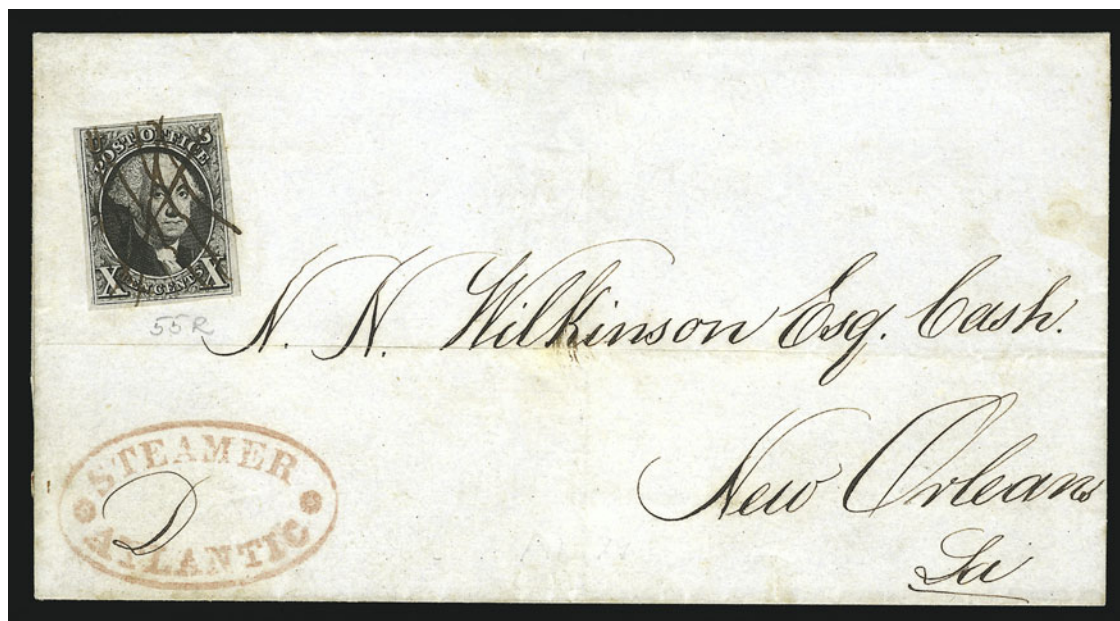 U S
POST OFFICE
X TEN CENTS X
55R
N. N. Wilkinson Esq. Cash.
New Orleans
La
STEAMER
D
ATLANTIC